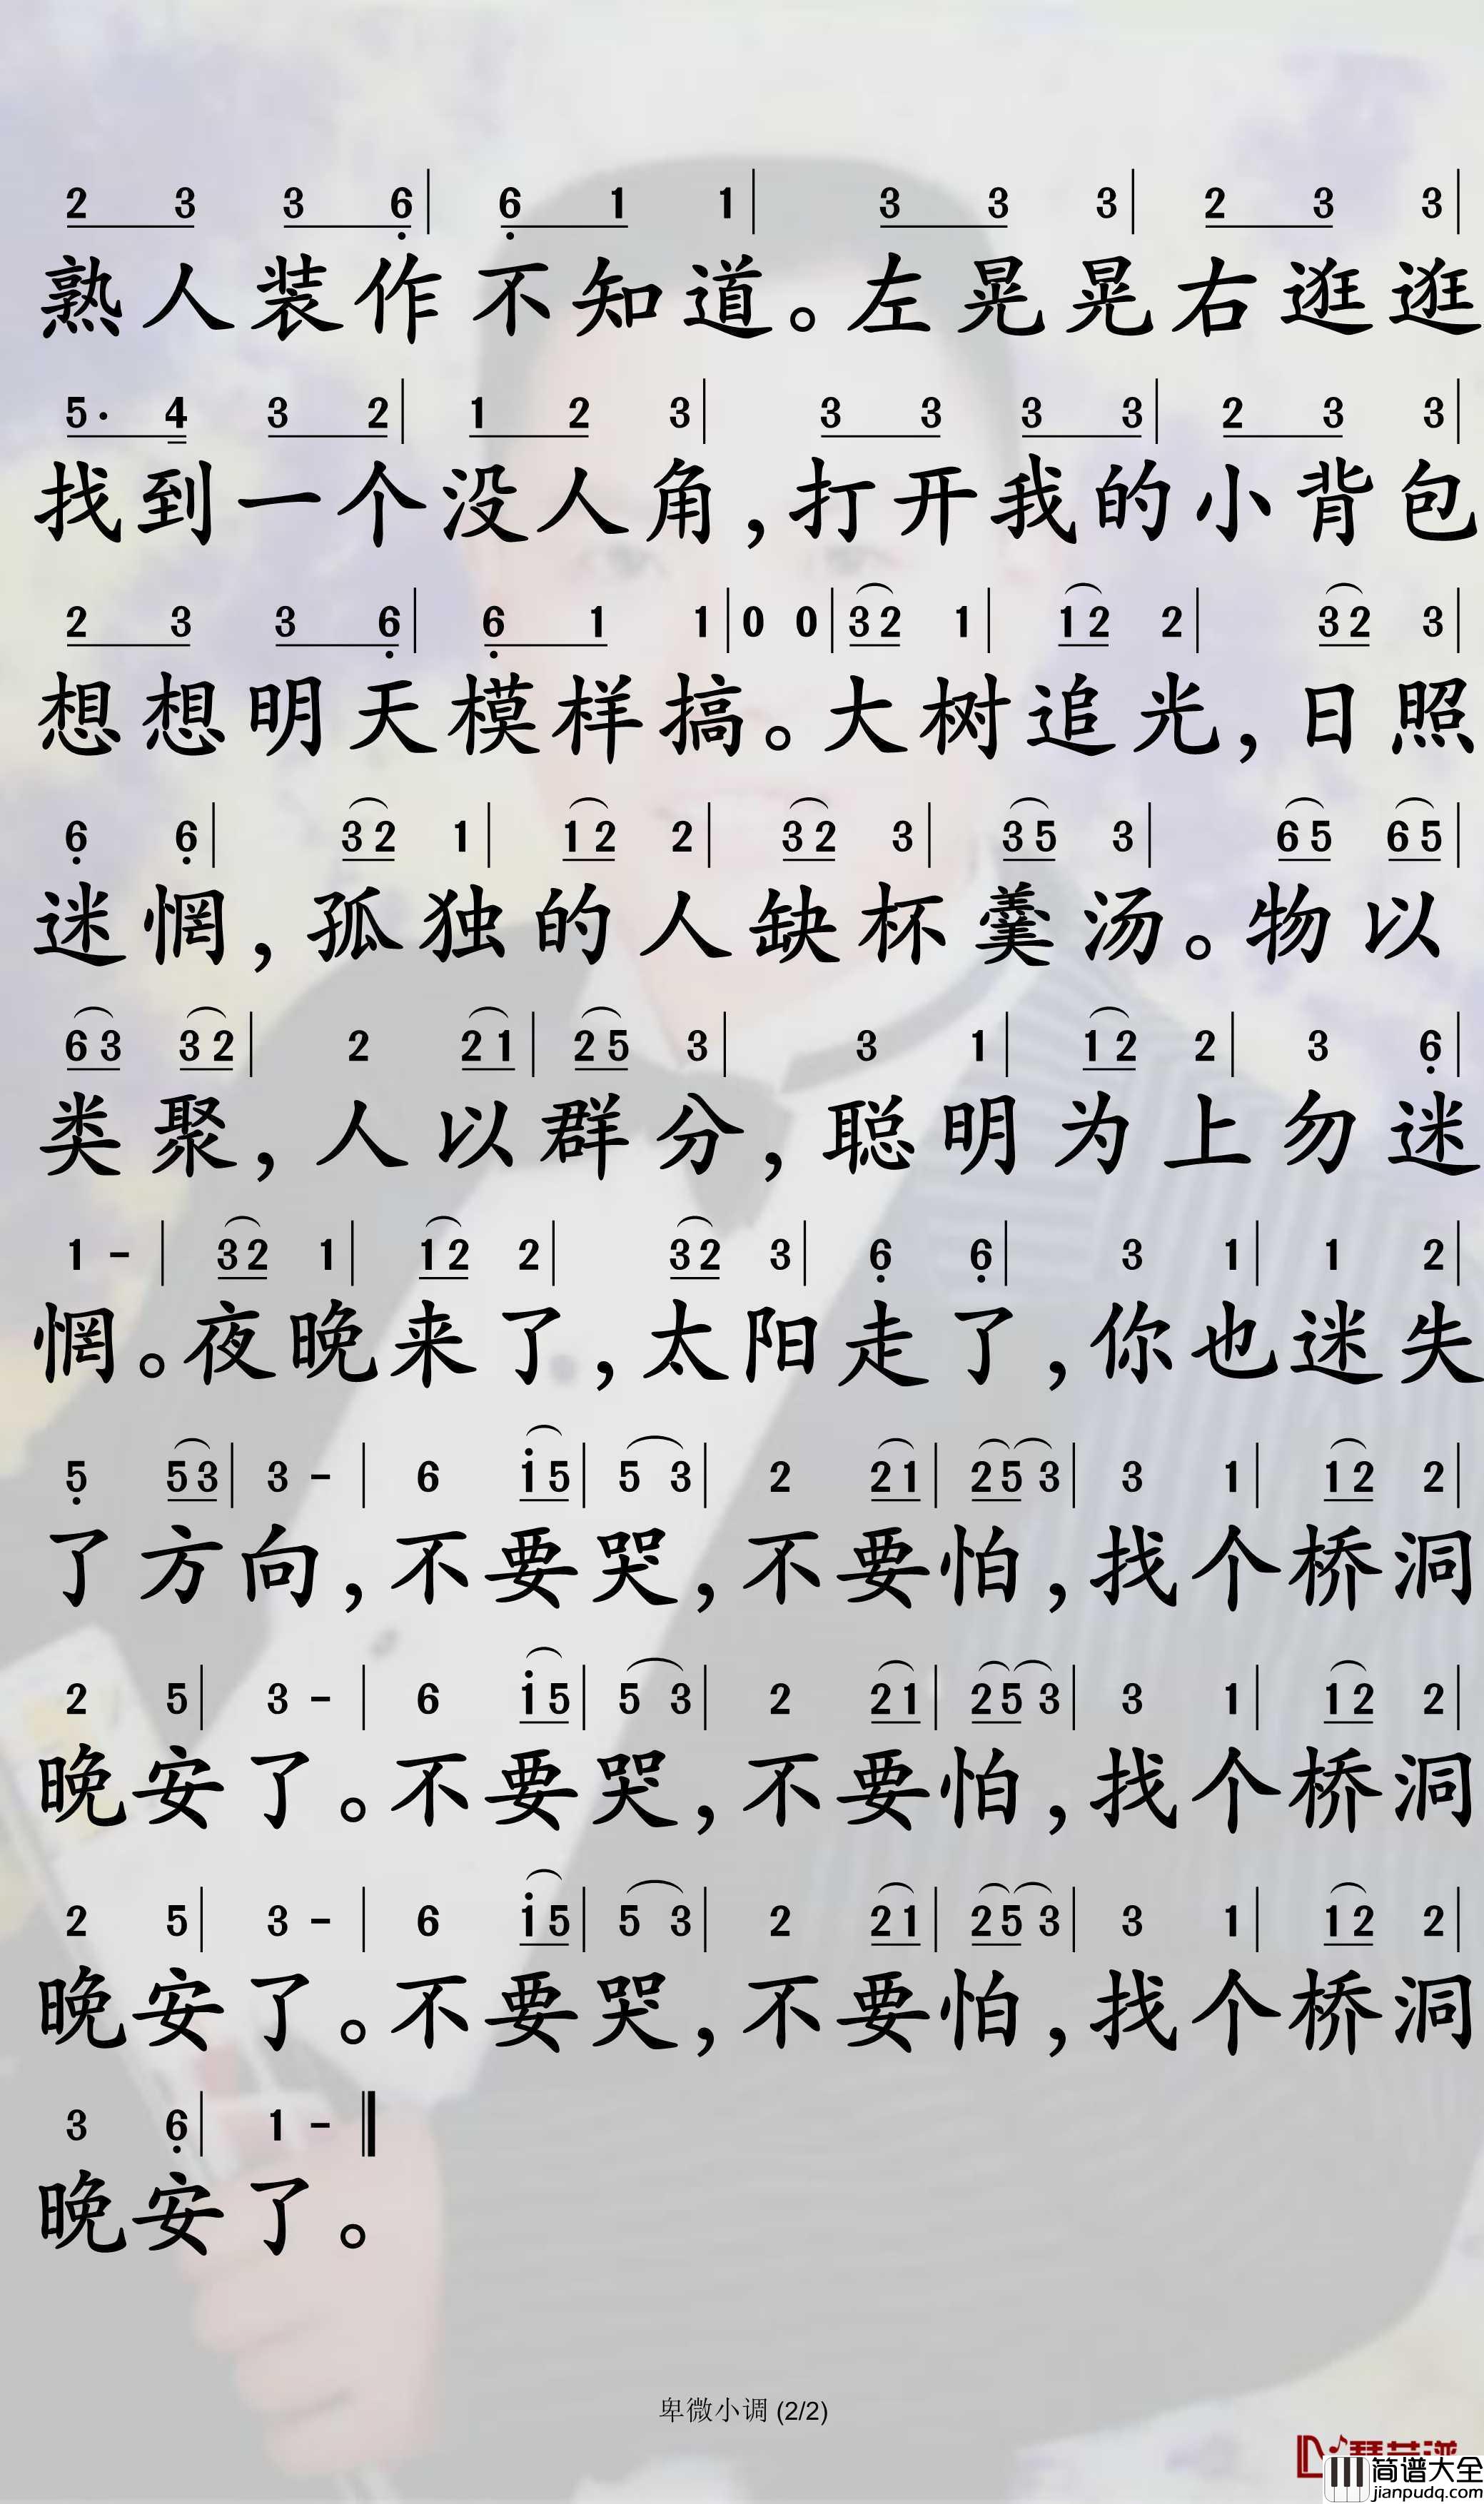 2 3 3 6 | 6 1 1 | 3 3 3 | 2 3 3 |
熟人装作不知道。左晃晃右逛逛
5· 4 3 2 | 1 2 3 | 3 3 3 3 | 2 3 3 |
找到一个没人角,打开我的小背包
2 3 3 6 | 6 1 1 | 0 0 | 3 2 1 | 1 2 2 | 3 2 3 |
想想明天模样搞。大树追光,日照
6 6 | 3 2 1 | 1 2 2 | 3 2 3 | 3 5 3 | 6 5 6 5 |
迷惘,孤独的人缺杯羹汤。物以
6 3 3 2 | 2 2 1 | 2 5 3 | 3 1 | 1 2 2 | 3 6 |
类聚,人以群分,聪明为上勿迷
1 - | 3 2 1 | 1 2 2 | 3 2 3 | 6 6 | 3 1 | 1 2 |
惘。夜晚来了,太阳走了,你也迷失
5 5 3 | 3 - | 6 i 5 | 5 3 | 2 2 1 | 2 5 3 | 3 1 | 1 2 2 |
了方向,不要哭,不要怕,找个桥洞
2 5 | 3 - | 6 i 5 | 5 3 | 2 2 1 | 2 5 3 | 3 1 | 1 2 2 |
晚安了。不要哭,不要怕,找个桥洞
2 5 | 3 - | 6 i 5 | 5 3 | 2 2 1 | 2 5 3 | 3 1 | 1 2 2 |
晚安了。不要哭,不要怕,找个桥洞
3 6 | 1 - ‖
晚安了。
卑微小调 (2/2)
简谱大全
jianpudq.com